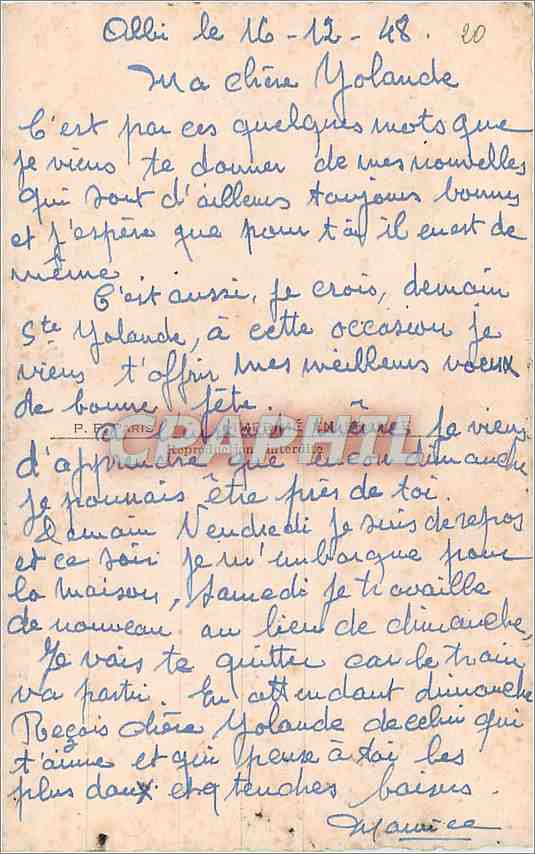 Albi le 16-12-48. 20
Ma chère Yolande
C'est par ces quelques mots que
je viens te donner de mes nouvelles
qui sont d'ailleurs toujours bonnes
et j'espère que pour toi il en est de
même
C'est aussi, je crois, demain
Ste Yolande, à cette occasion je
viens t'offrir mes meilleurs voeux
de bonne fête.
P. PARIS IMPRIMÉ EN je viens
CPAPHIL
Reproduction interdite
d'apprendre que encore dimanche
je pourrais être près de toi.
Demain Vendredi je suis de repos
et ce soir je m'embarque pour
la maison, Samedi je travaille
de nouveau au lieu de dimanche,
Je vais te quitter car le train
va partir. En attendant dimanche
Reçois chère Yolande de celui qui
t'aime et qui pense à toi les
plus doux et tendres baisers.
Maurice